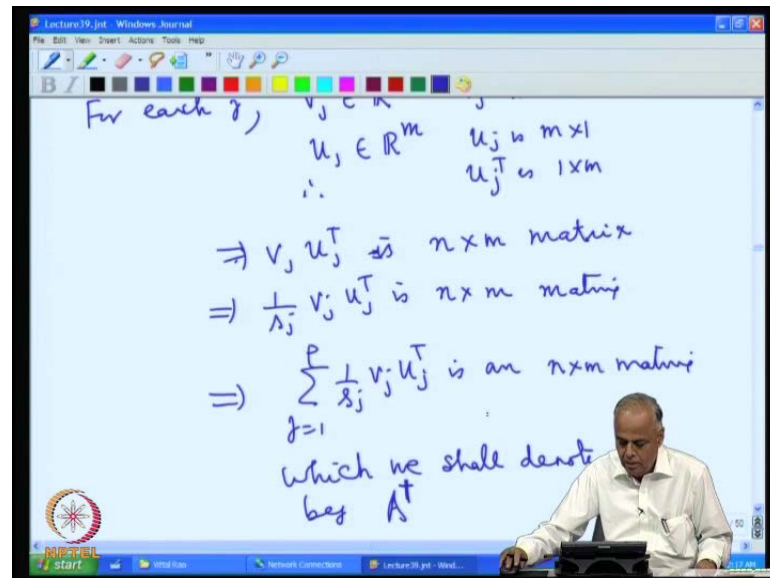 Lecture39.jnt - Windows Journal
File Edit View Insert Actions Tools Help
B I
For each j, vj ∈ R
uj ∈ R^m uj is m×1
∴ uj^T is 1×m
⇒ vj uj^T is n×m matrix
⇒ 1/sj vj uj^T is n×m matrix
⇒ ∑_{j=1}^{p} 1/sj vj uj^T is an n×m matrix
which we shall denote
by A^†
/ 50
NPTEL
start Vittal Rao Network Connections Lecture39.jnt - Wind... 2:17 AM